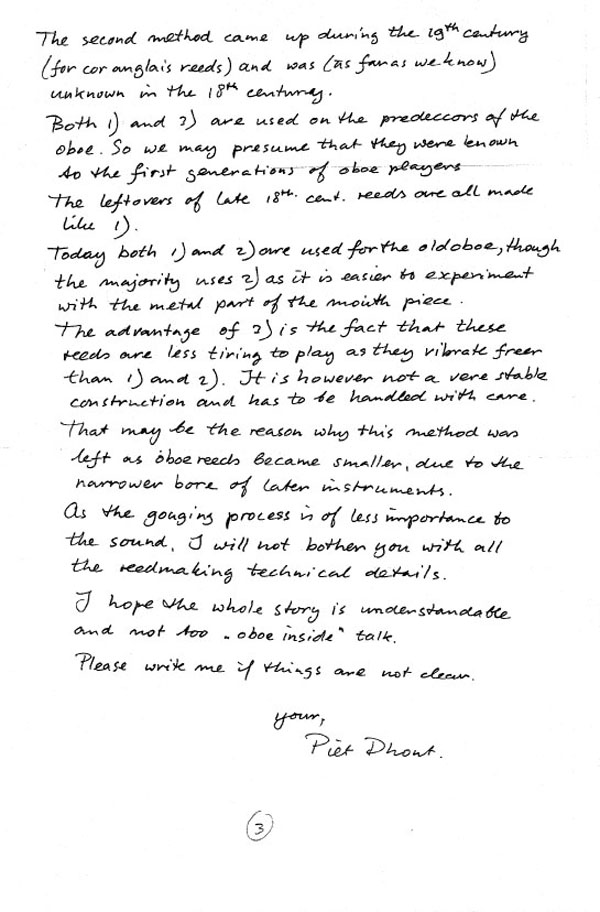 The second method came up during the 19th century
(for cor anglais reeds) and was (as far as we know)
unknown in the 18th centurey.
Both 1) and 3) are used on the predeccors of the
oboe. So we may presume that they were known
to the first generations of oboe players
The leftovers of late 18th cent. reeds are all made
like 1).
Today both 1) and 2) are used for the old oboe, though
the majority uses 2) as it is easier to experiment
with the metal part of the mouth piece.
The advantage of 3) is the fact that these
reeds are less tiring to play as they vibrate freer
than 1) and 2). It is however not a vere stable
construction and has to be handled with care.
That may be the reason why this method was
left as oboe reeds became smaller, due to the
narrower bore of later instruments.
As the gouging process is of less importance to
the sound, I will not bother you with all
the reedmaking technical details.
I hope the whole story is understandable
and not too „oboe inside" talk.
Please write me if things are not clear.
your,
Piet Dhont.
3